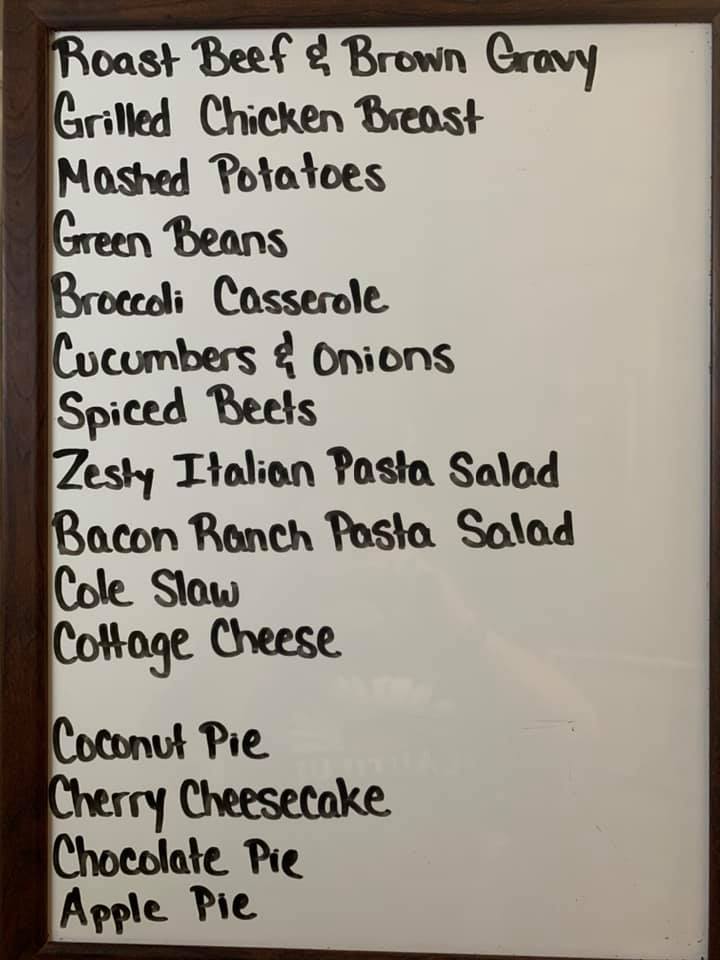 Roast Beef & Brown Gravy
Grilled Chicken Breast
Mashed Potatoes
Green Beans
Broccoli Casserole
Cucumbers & Onions
Spiced Beets
Zesty Italian Pasta Salad
Bacon Ranch Pasta Salad
Cole Slaw
Cottage Cheese
Coconut Pie
Cherry Cheesecake
Chocolate Pie
Apple Pie